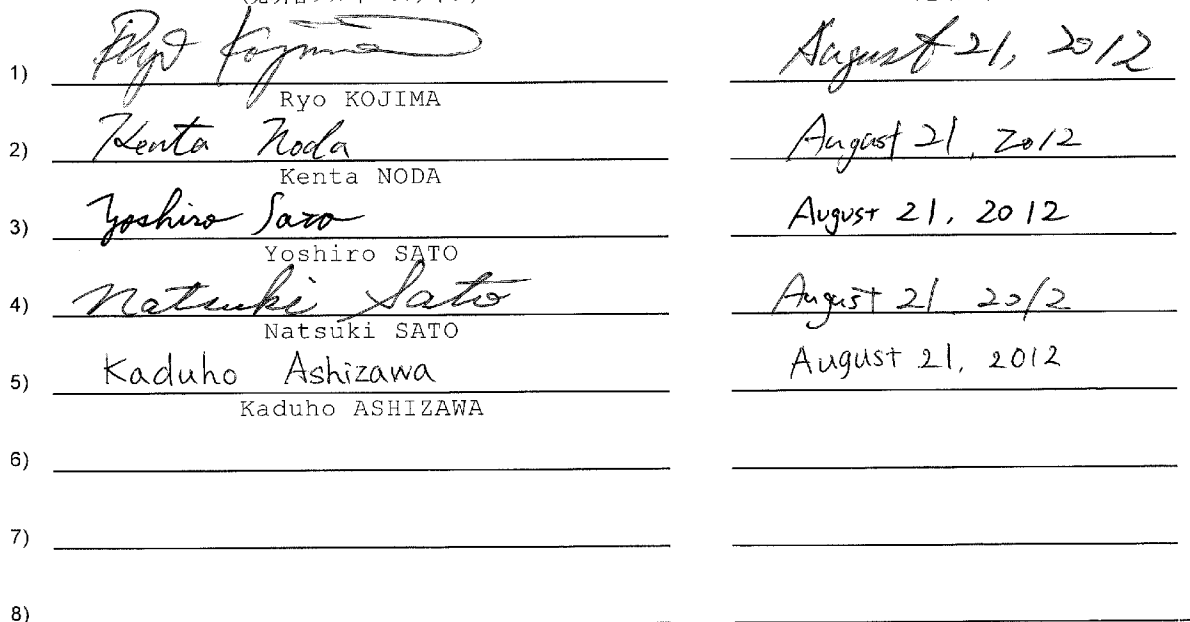 1) Ryo Kojima August 21, 2012
Ryo KOJIMA
2) Kenta Noda August 21, 2012
Kenta NODA
3) Yoshiro Sato August 21, 2012
Yoshiro SATO
4) Natsuki Sato August 21 2012
Natsuki SATO
5) Kaduho Ashizawa August 21, 2012
Kaduho ASHIZAWA
6)
7)
8)